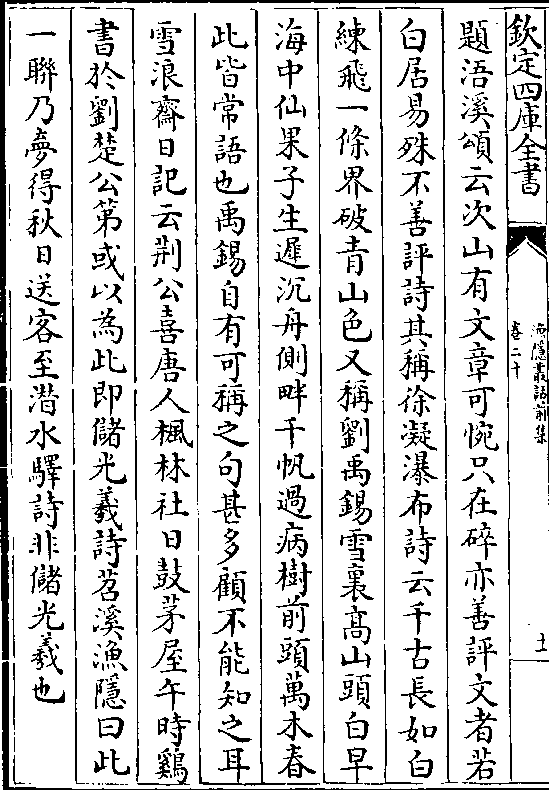 欽定四庫全書
漁隱叢話前集
卷二十
十一
題浯溪頌云次山有文章可惋只在碎亦善評文者若
白居易殊不善評詩其稱徐凝瀑布詩云千古長如白
練飛一條界破青山色又稱劉禹錫雪裏高山頭白早
海中仙果子生遲沉舟側畔千帆過病樹前頭萬木春
此皆常語也禹錫自有可稱之句甚多顧不能知之耳
雪浪齋日記云荆公喜唐人楓林社日鼓茅屋午時鷄
書於劉楚公第或以為此即儲光羲詩苕溪漁隱曰此
一聯乃夢得秋日送客至潛水驛詩非儲光羲也